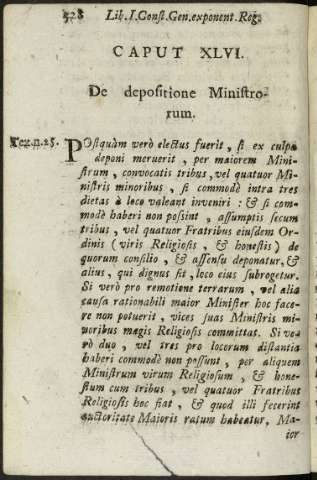 528 Lib. I. Const. Gen. exponent. Reg.
CAPUT XLVI.
De depositione Ministro-
rum.
Tex. n. 25. POstquàm verò electus fuerit, si ex culpa
deponi meruerit, per maiorem Mini-
strum, convocatis tribus, vel quatuor Mi-
nistris minoribus, si commodè intra tres
dietas à loco valeant inveniri: & si com-
modè haberi non possint, assumptis secum
tribus, vel quatuor Fratribus eiusdem Or-
dinis (viris Religiosis, & honestis) de
quorum consilio, & assensu deponatur, &
alius, qui dignus sit, loco eius subrogetur.
Si verò pro remotione terrarum, vel alia
causa rationabili maior Minister hoc face-
re non potuerit, vices suas Ministris mi-
noribus magis Religiosis committat. Si ve-
rò duo, vel tres pro locorum distantia
haberi commodè non possunt, per aliquem
Ministrum virum Religiosum, & hone-
stum cum tribus, vel quatuor Fratribus
Religiosis hoc fiat, & quod illi fecerint
auctoritate Maioris ratum habeatur. Ma-
ior